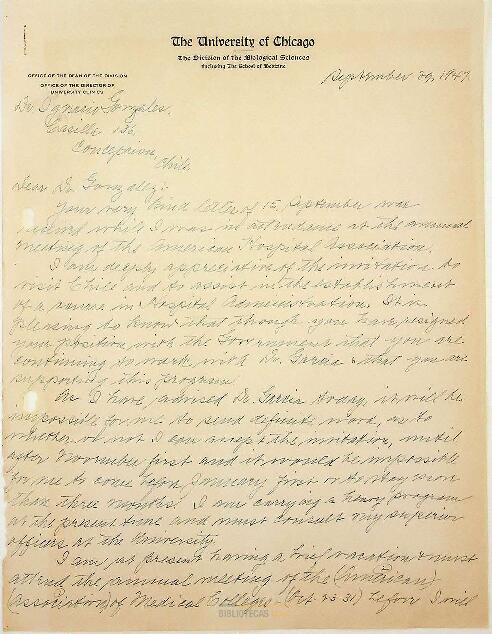 The University of Chicago
The Division of the Biological Sciences
Including The School of Medicine
OFFICE OF THE DEAN OF THE DIVISION
OFFICE OF THE DIRECTOR OF
UNIVERSITY CLINICS
September 29, 1947
Dr. Ignacio Gonzalez,
Casilla 156,
Concepcion,
Chile
Dear Dr. Gonzalez:
Your very kind letter of 15 September was
received while I was in attendance at the annual
meeting of the American Hospital Association.
I am deeply appreciative of the invitation to
visit Chile and to assist in the establishment
of a course in Hospital Administration. It is
pleasing to know that though you have resigned
your position with the Government that you are
continuing to work with Dr. Garcia & that you are
supporting this program.
As I have advised Dr. Garcia today, it will be
impossible for me to send definite word, as to
whether or not I can accept the invitation, until
after November first and it would be impossible
for me to come before January first or to stay
than three months. I am carrying a heavy program
at the present time and must consult my superior
officers at the University.
I am, at present having a brief vacation & must
attend the annual meeting of the (American)
(Association) of Medical Colleges (Oct. 31) before I will
BIBLIOTECAS